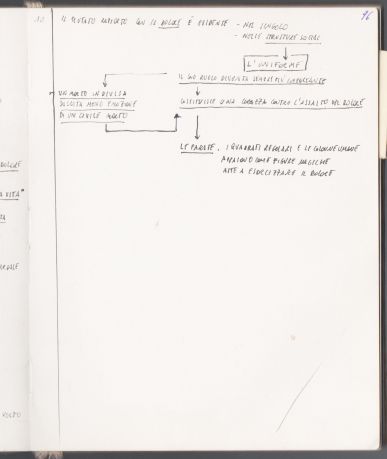 96
IL MUTATO RAPPORTO CON IL DOLORE È EVIDENTE - NEL SINGOLO
- NELLE STRUTTURE SOCIALI
L'UNIFORME
IL SUO RUOLO DIVENTA SEMPRE PIÙ
UN MORTO IN DIVISA
SUSCITA MENO EMOZIONE
DI UN CIVILE MORTO
COSTITUISCE UNA CORAZZA CONTRO L'ASSALTO DEL DOLORE
LE PARATE, I QUADRATI REGOLARI E LE COLONNE UMANE
APPAIONO COME FIGURE MAGICHE
ATTE A ESORCIZZARE IL DOLORE
DOLORE
VITA"